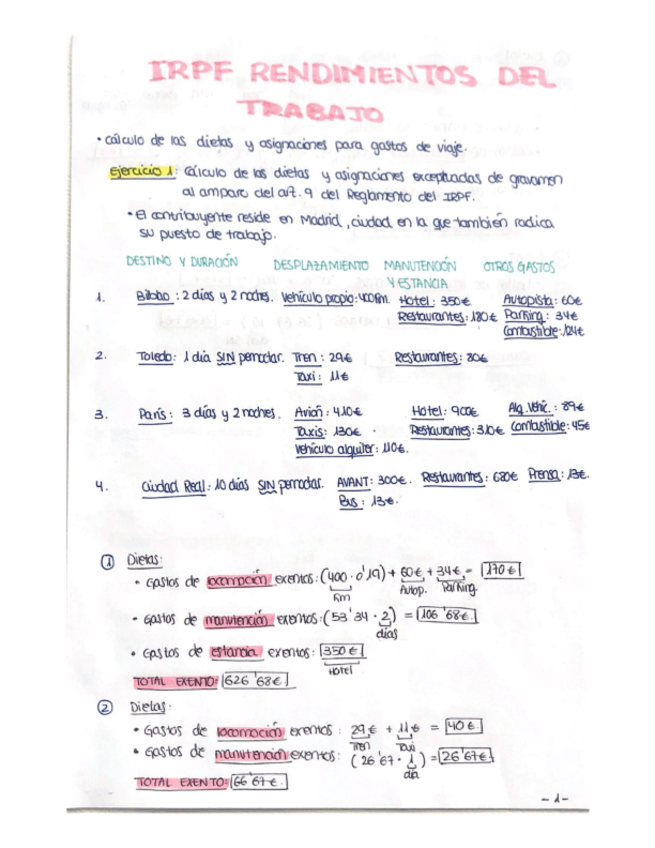 IRPF RENDIMIENTOS DEL
TRABAJO
• cálculo de las dietas y asignaciones para gastos de viaje.
Ejercicio 1: Cálculo de las dietas y asignaciones exceptuadas de gravamen
al amparo del art. 9 del Reglamento del IRPF.
• El contribuyente reside en Madrid, ciudad en la que también radica
su puesto de trabajo.
DESTINO Y DURACIÓN DESPLAZAMIENTO MANUTENCIÓN OTROS GASTOS
Y ESTANCIA
1. Bilbao: 2 días y 2 noches. Vehículo propio: 400Km. Hotel: 350€ Autopista: 60€
Restaurantes: 180€ Parking: 34€
Combustible: 124€
2. Toledo: 1 día SIN pernoctar. Tren: 29€ Restaurantes: 80€
Taxi: 11€
3. París: 3 días y 2 noches. Avión: 410€ Hotel: 900€ Alq. Vehic.: 89€
Taxis: 130€ Restaurantes: 310€ Combustible: 45€
Vehículo alquiler: 110€.
4. Ciudad Real: 10 días SIN pernoctar. AVANT: 300€. Restaurantes: 680€ Prensa: 13€.
Bus: 13€.
① Dietas:
• Gastos de locomoción exentos: (400 · 0'19) + 60€ + 34€ = 170€
Km Autop. Parking.
• Gastos de manutención exentos: (53'34 · 2) = 106'68€.
días
• Gastos de estancia exentos: 350€
Hotel
TOTAL EXENTO: 626'68€
② Dietas:
• Gastos de locomoción exentos: 29€ + 11€ = 40€.
Tren Taxi
• Gastos de manutención exentos: (26'67 · 1) = 26'67€
día
TOTAL EXENTO: 66'67€.
- 1 -